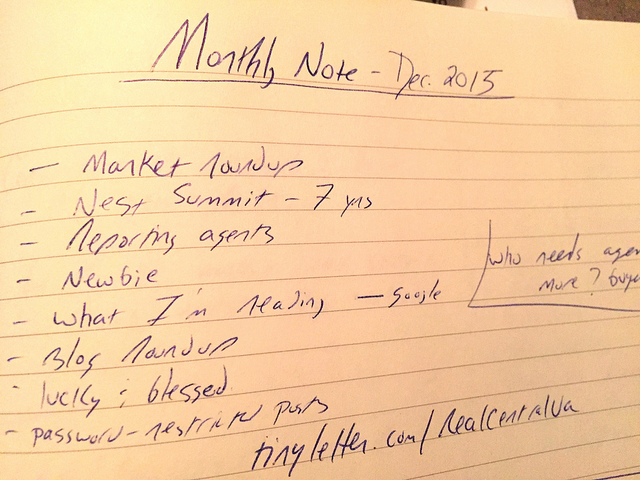 Monthly Note - Dec. 2015
- Market roundup
- Nest Summit - 7 yrs
- Reporting agents
- Newbie
- What I'm reading - Google
- Blog roundup
- lucky & blessed
- password-restricted posts
who needs agen
more? buye
tinyletter.com/RealCentralVa